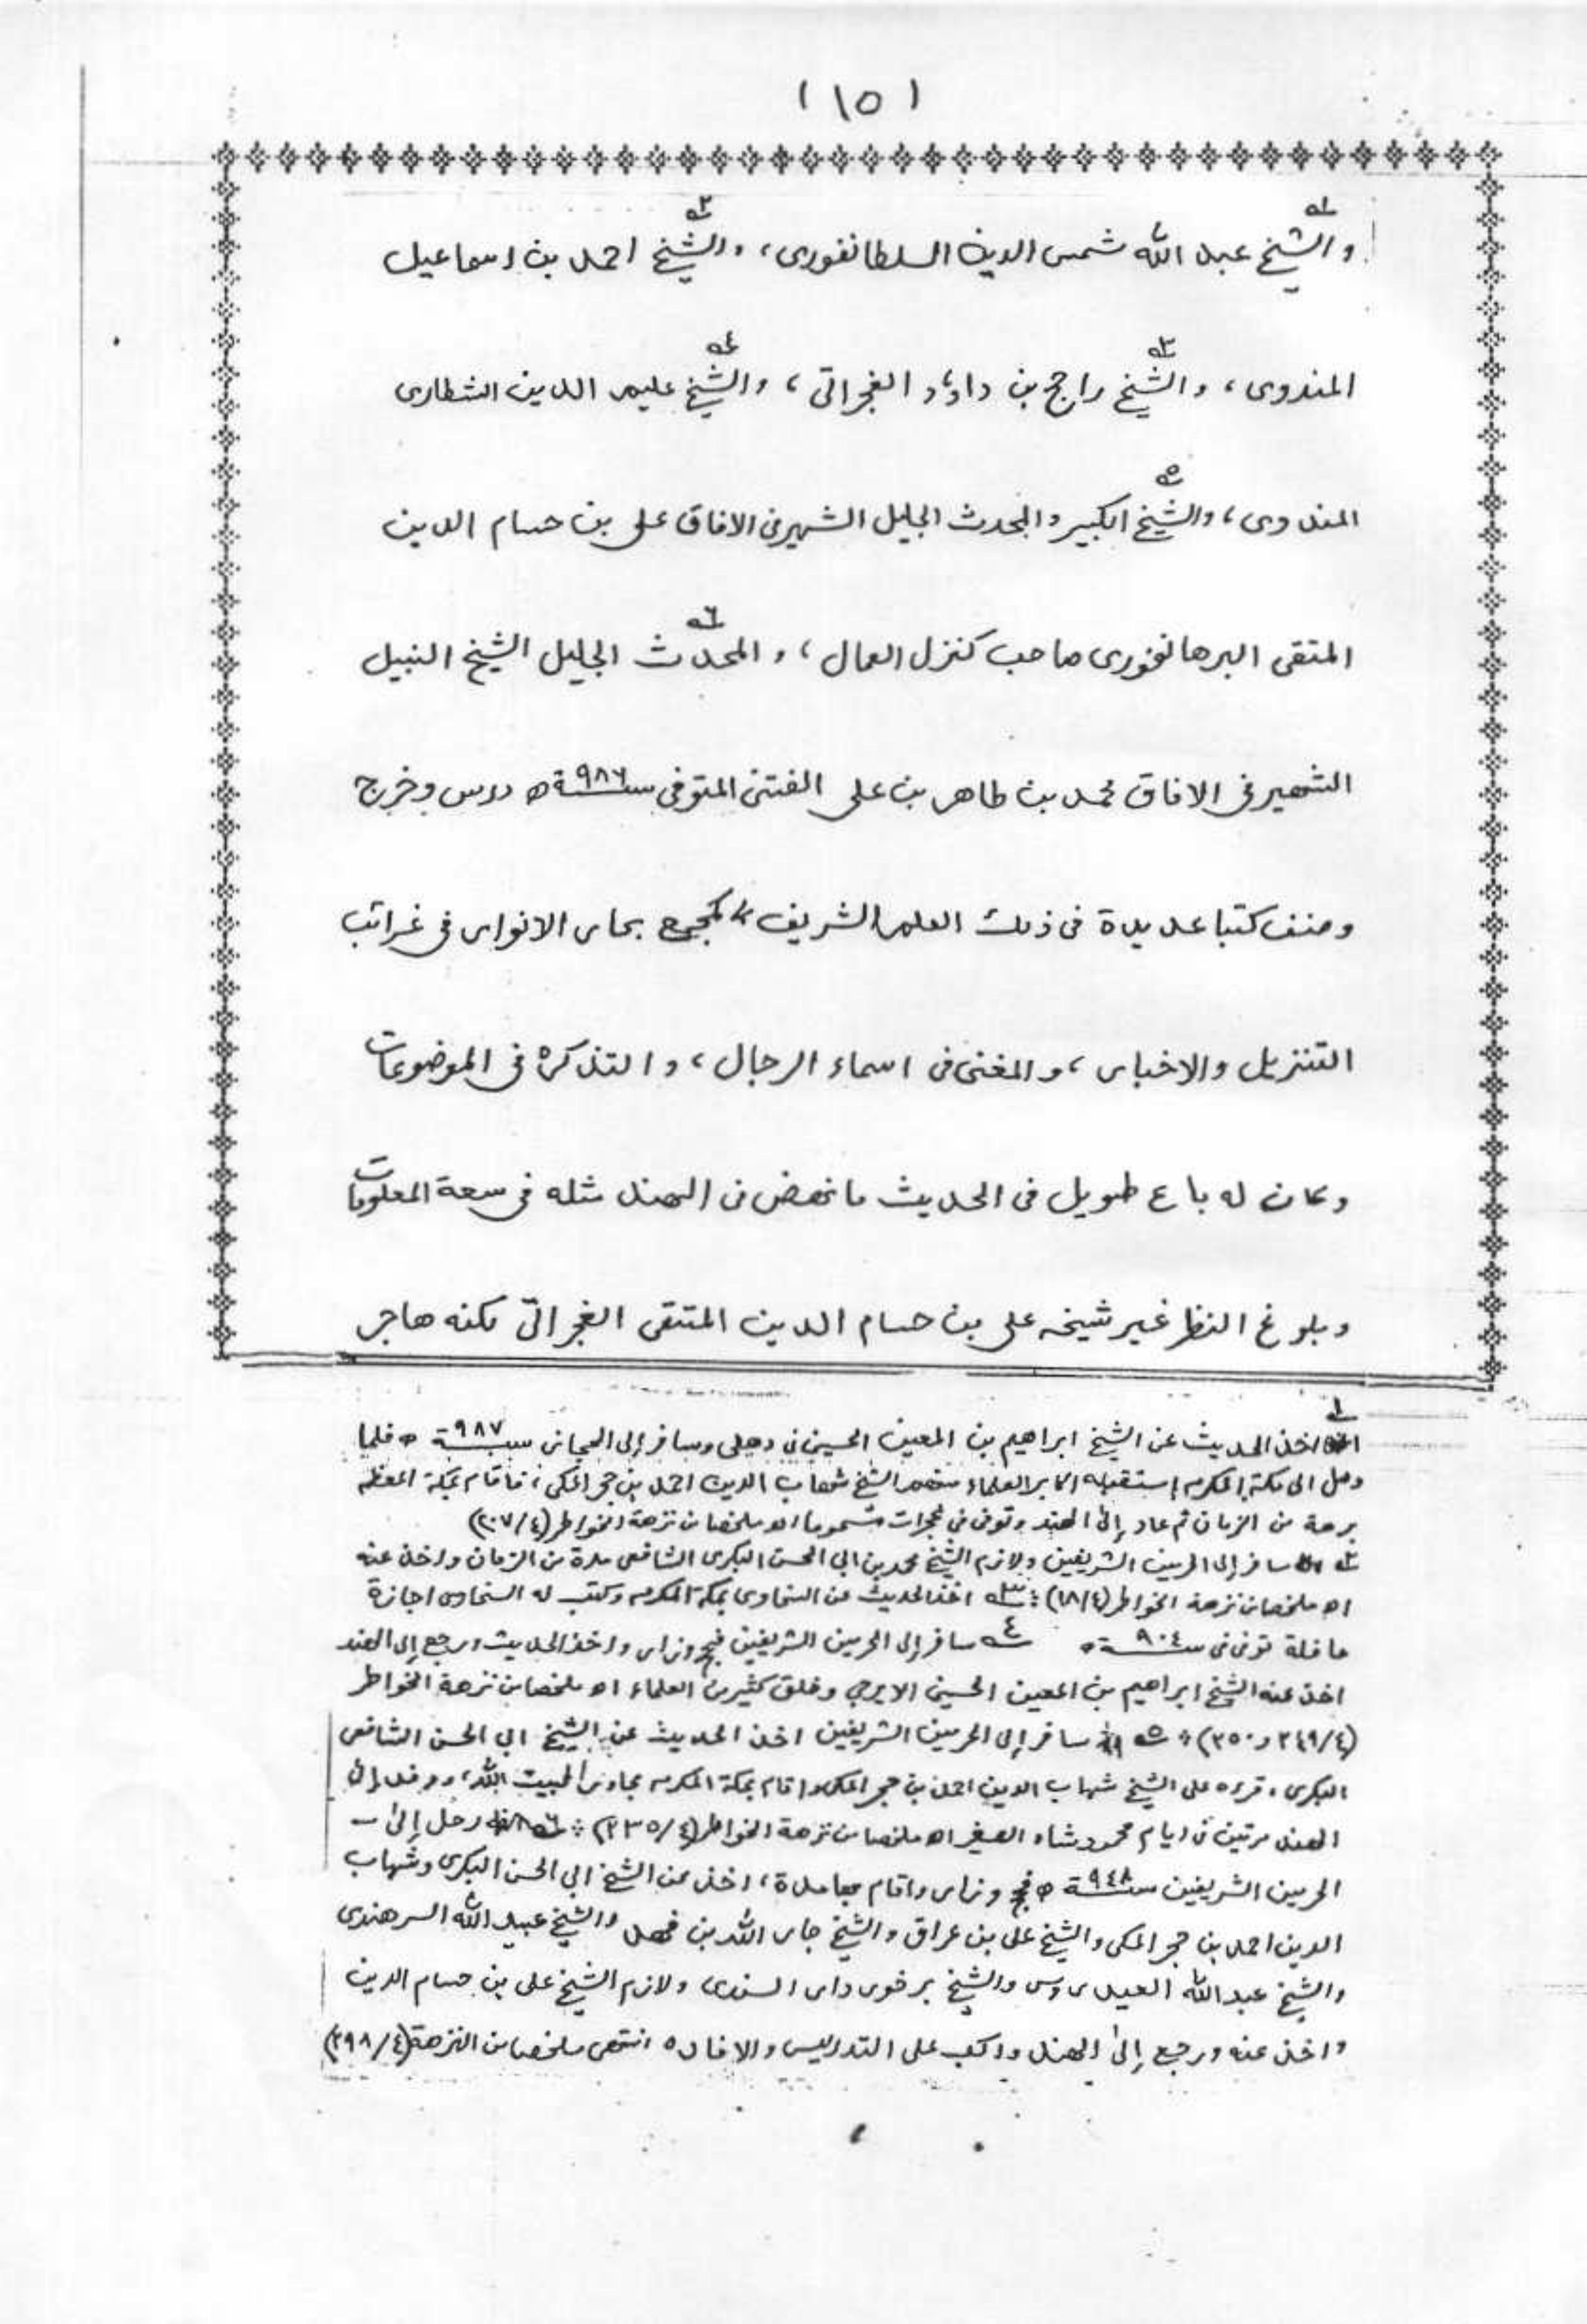 (١٥)
والشيخ عبد الله شمس الدين السلطانفورى، والشيخ احمد بن اسماعيل
١ ٢
المندوى، والشيخ راجح بن داؤد الغجراتى، والشيخ عليم الدين الشطارى
٣ ٤
المندوى، والشيخ الكبير والمحدث الجليل الشهير فى الافاق على بن حسام الدين
٥
المتقى البرهانفورى صاحب كنزل العمال، والمحدث الجليل الشيخ النبيل
٦
الشهير فى الافاق محمد بن طاهر بن على الفتنى المتوفى سنة ٩٨٦ ه درس وخرج
وصنف كتبا عديدة فى ذلك العلم الشريف كمجمع بحار الانوار فى غرائب
التنزيل والاخبار، والمغنى فى اسماء الرجال، والتذكرة فى الموضوعات
وكان له باع طويل فى الحديث ما نهض فى الهند مثله فى سعة المعلومات
وبلوغ النظر غير شيخه على بن حسام الدين المتقى الغجراتى لكنه هاجر
١ اخذ الحديث عن الشيخ ابراهيم بن المعين الحسينى فى دهلى وسافر إلى الحجاز سنة ٩٨٧ ه فلما
وصل الى مكة المكرمه إستقبله اكابر العلماء منهم الشيخ شهاب الدين احمد بن حجر المكى، فاقام بمكة المعظمه
برهة من الزمان ثم عاد إلى الهند وتوفى فى غجرات مسموما اه ملخصا من نزهة الخواطر (٤/٢٠٧)
٢ سافر إلى الحرمين الشريفين ولازم الشيخ محمد بن ابى الحسن البكرى الشافعى مدة من الزمان واخذ عنه
اه ملخصا من نزهة الخواطر (٤/١٨) ٣ اخذ الحديث عن السخاوى بمكة المكرمه وكتب له السخاوى اجازة
حافلة توفى فى سنة ٩٠٤ ه ٤ سافر إلى الحرمين الشريفين فحج وزار واخذ الحديث ورجع إلى الهند
اخذ عنه الشيخ ابراهيم بن المعين الحسينى الايرجى وخلق كثير من العلماء اه ملخصا من نزهة الخواطر
(٤/٢٤٩ و ٢٥٠) ٥ سافر إلى الحرمين الشريفين اخذ الحديث عن الشيخ ابى الحسن الشافعى
البكرى، قرءه على الشيخ شهاب الدين احمد بن حجر المكى واقام بمكة المكرمه مجاورا لبيت الله، ووفد إلى
الهند مرتين فى ايام محمود شاه الصغير اه ملخصا من نزهة الخواطر (٤/٢٣٥) ٦ رحل إلى
الحرمين الشريفين سنة ٩٤٨ ه فحج وزار واقام بها مدة، اخذ عن الشيخ ابى الحسن البكرى وشهاب
الدين احمد بن حجر المكى والشيخ على بن عراق والشيخ جار الله بن فهد والشيخ عبيد الله السرهندى
والشيخ عبد الله العيدروس والشيخ برخوردار السندى ولازم الشيخ على بن حسام الدين
واخذ عنه ورجع إلى الهند واكب على التدريس والافاده انتهى ملخصا من النزهة (٤/٢٩٨)